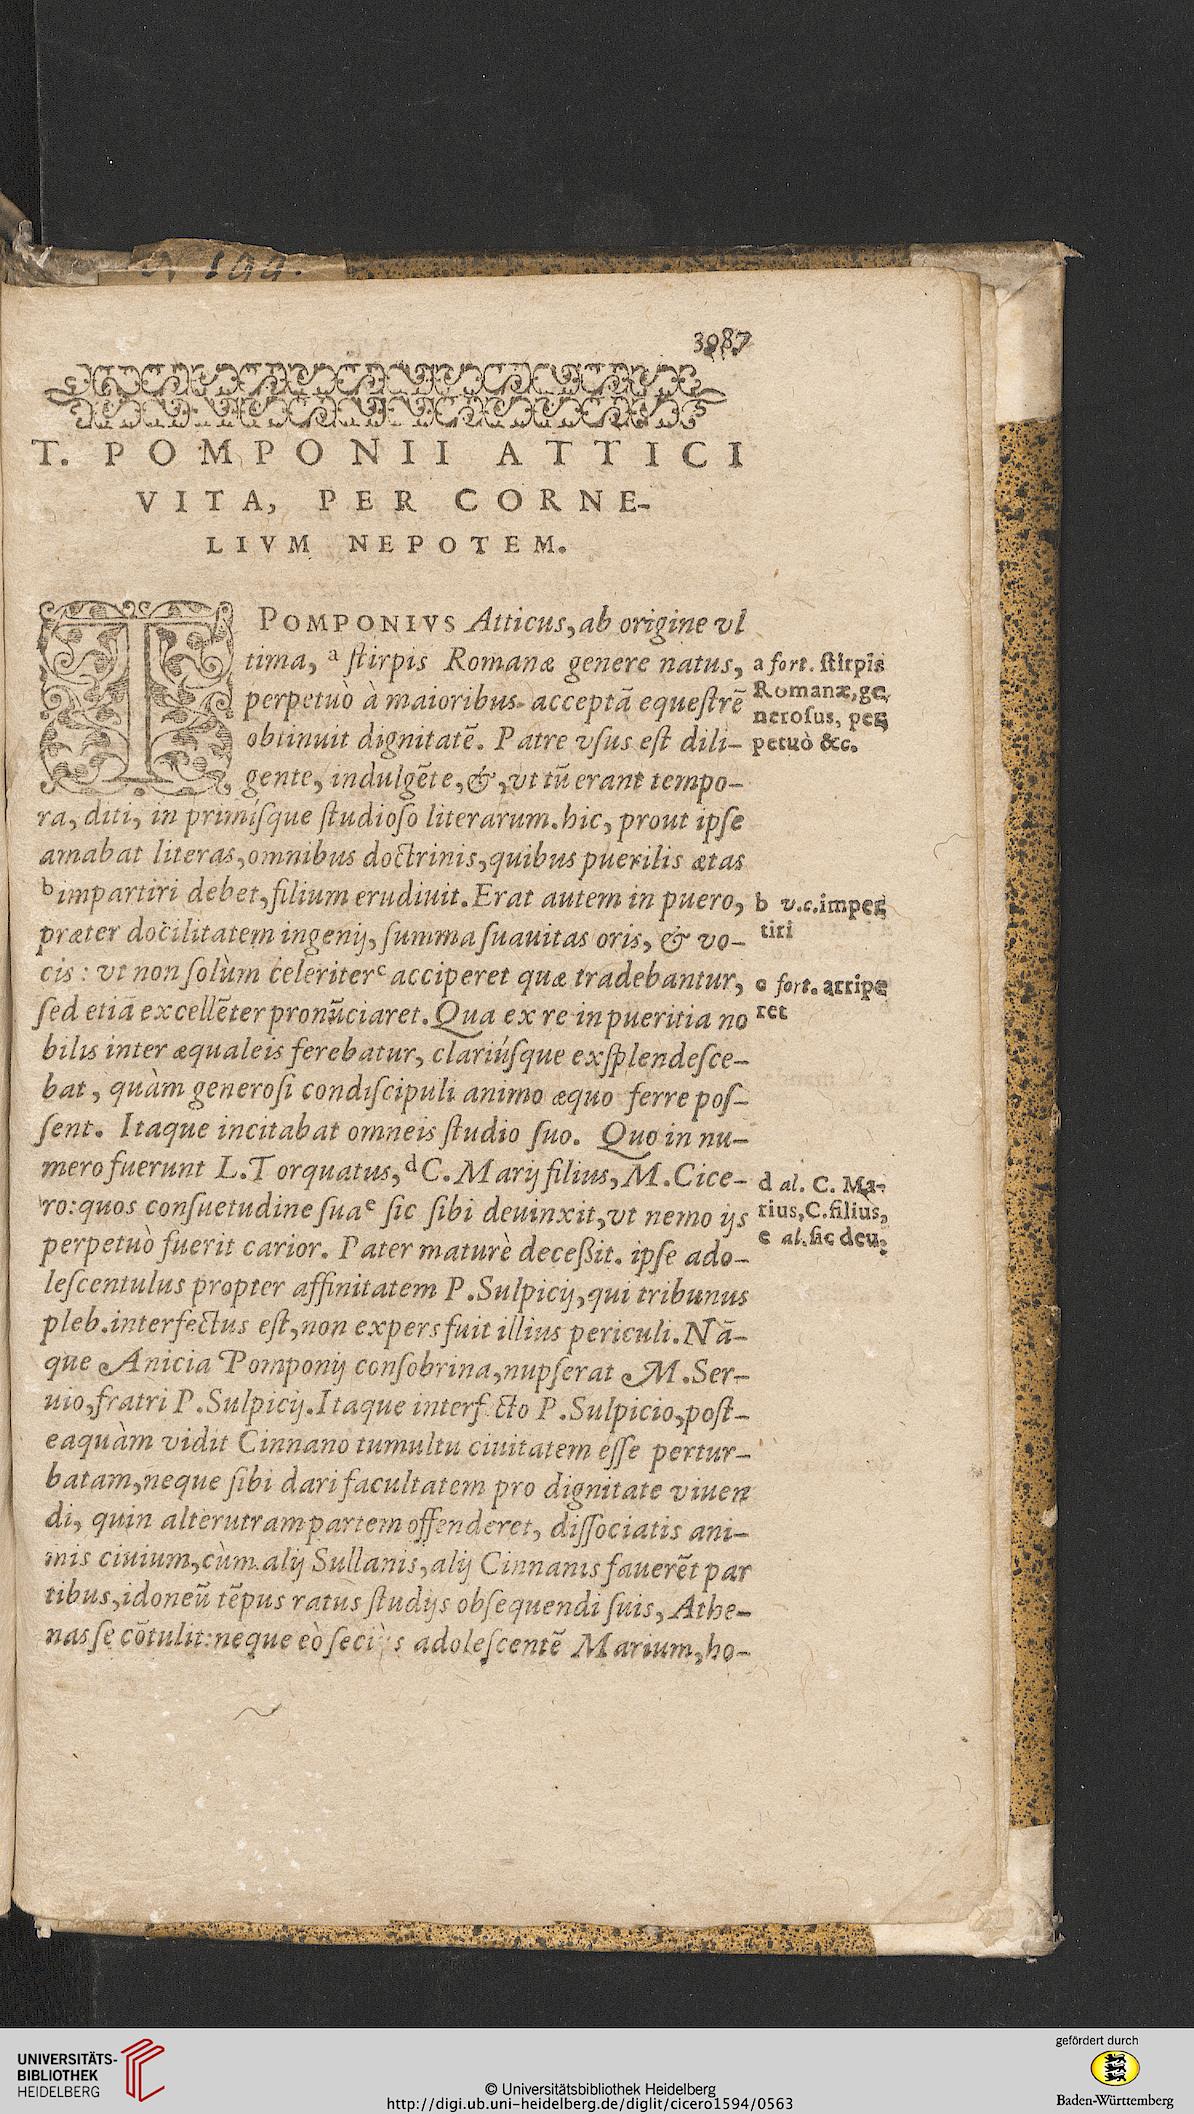 199.
3087
T. POMPONII ATTICI
VITA, PER CORNE-
LIVM NEPOTEM.
T POMPONIVS Atticus, ab origine vl
tima, a ſtirpis Romanæ genere natus,
perpetuò à maioribus acceptā equeſtrē
obtinuit dignitatē. Patre vſus eſt dili-
gente, indulgēte, &, vt tū erant tempo-
ra, diti, in primíſque ſtudioſo literarum. hic, prout ipſe
amabat literas, omnibus doctrinis, quibus puerilis ætas
b impartiri debet, filium erudiuit. Erat autem in puero,
præter docilitatem ingenij, ſumma ſuauitas oris, & vo-
cis: vt non ſolùm celeriter c acciperet quæ tradebantur,
ſed etiā excellēter pronūciaret. Qua ex re in pueritia no
bilis inter æqualeis ferebatur, clariúſque exſplendeſce-
bat, quàm generoſi condiſcipuli animo æquo ferre poſ-
ſent. Itaque incitabat omneis ſtudio ſuo. Quo in nu-
mero fuerunt L. Torquatus, d C. Marij filius, M. Cice-
ro: quos conſuetudine ſua e ſic ſibi deuinxit, vt nemo ijs
perpetuò fuerit carior. Pater maturè deceßit. ipſe ado-
leſcentulus propter affinitatem P. Sulpicij, qui tribunus
pleb. interfectus eſt, non expers fuit illius periculi. Nā-
que Anicia Pomponij conſobrina, nupſerat M. Ser-
uio, fratri P. Sulpicij. Itaque interf cto P. Sulpicio, poſt-
eaquàm vidit Cinnano tumultu ciuitatem eſſe pertur-
batam, neque ſibi dari facultatem pro dignitate viuen
di, quin alterutram partem offenderet, diſſociatis ani-
mis ciuium, cùm alij Sullanis, alij Cinnanis fauerēt par
tibus, idoneū tēpus ratus ſtudijs obſequendi ſuis, Athe-
nas ſe cōtulit: neque eò ſeciùs adoleſcentē Marium, ho-
a fort. ſtirpis
Romanæ, ge
neroſus, per
petuò &c.
b v.c. imper
tiri
c fort. arripe
ret
d al. C. Ma-
rius, C. filius,
e al. ſic deu.
UNIVERSITÄTS-
BIBLIOTHEK
HEIDELBERG
© Universitätsbibliothek Heidelberg
http://digi.ub.uni-heidelberg.de/diglit/cicero1594/0563
gefördert durch
Baden-Württemberg